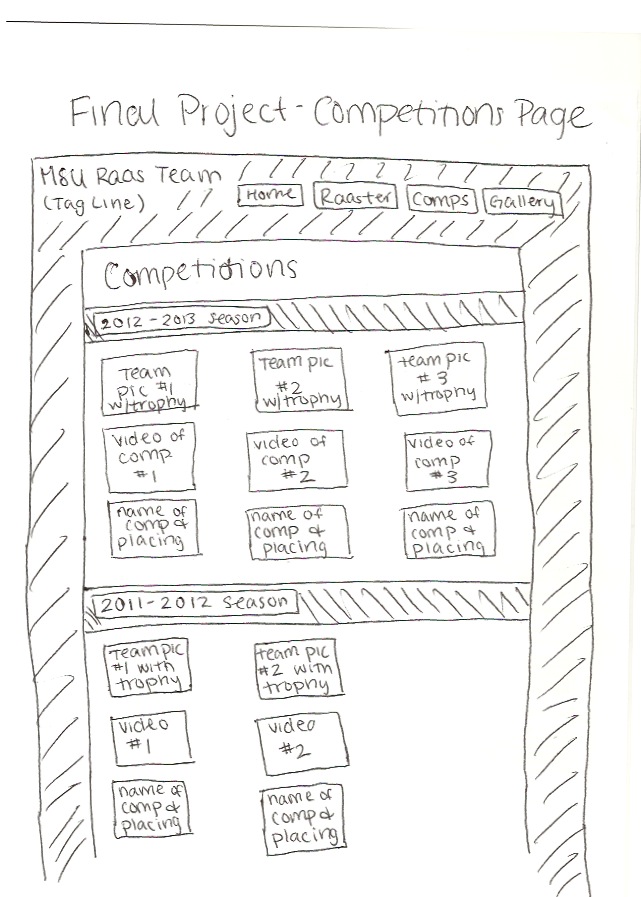 Final Project - Competitions Page
MSU Raas Team
(Tag Line)
Home
Raaster
Comps
Gallery
Competitions
2012 - 2013 season
Team
pic #1
w/trophy
Team pic
#2
w/trophy
team pic
# 3
w/trophy
video of
comp
#1
video of
comp
#2
video of
comp
#3
name of
comp &
placing
name of
comp &
placing
name of
comp &
placing
2011 - 2012 season
Team pic
#1 with
trophy
team pic
#2 with
trophy
video
#1
video
#2
name of
comp &
placing
name of
comp &
placing